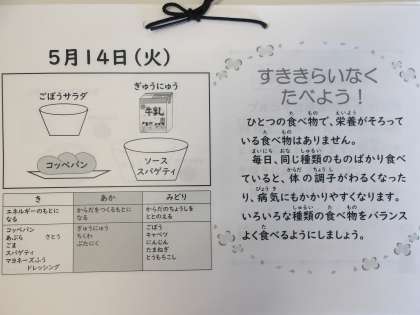 5月14日(火)
ごぼうサラダ
ぎゅうにゅう
牛乳
コッペパン
ソース
スパゲティ
き あか みどり
エネルギーのもとに
なる
からだをつくるもとに
なる
からだのちょうしを
ととのえる
コッペパン
あぶら さとう
ごま
スパゲティ
マヨネーズふう
ドレッシング
ぎゅうにゅう
ちくわ
ぶたにく
ごぼう
キャベツ
にんじん
たまねぎ
とうもろこし
すききらいなく
たべよう!
ひとつの食べ物で、栄養がそろって
いる食べ物はありません。
毎日、同じ種類のものばかり食べ
ていると、体の調子がわるくなった
り、病気にもかかりやすくなります。
いろいろな種類の食べ物をバランス
よく食べるようにしましょう。